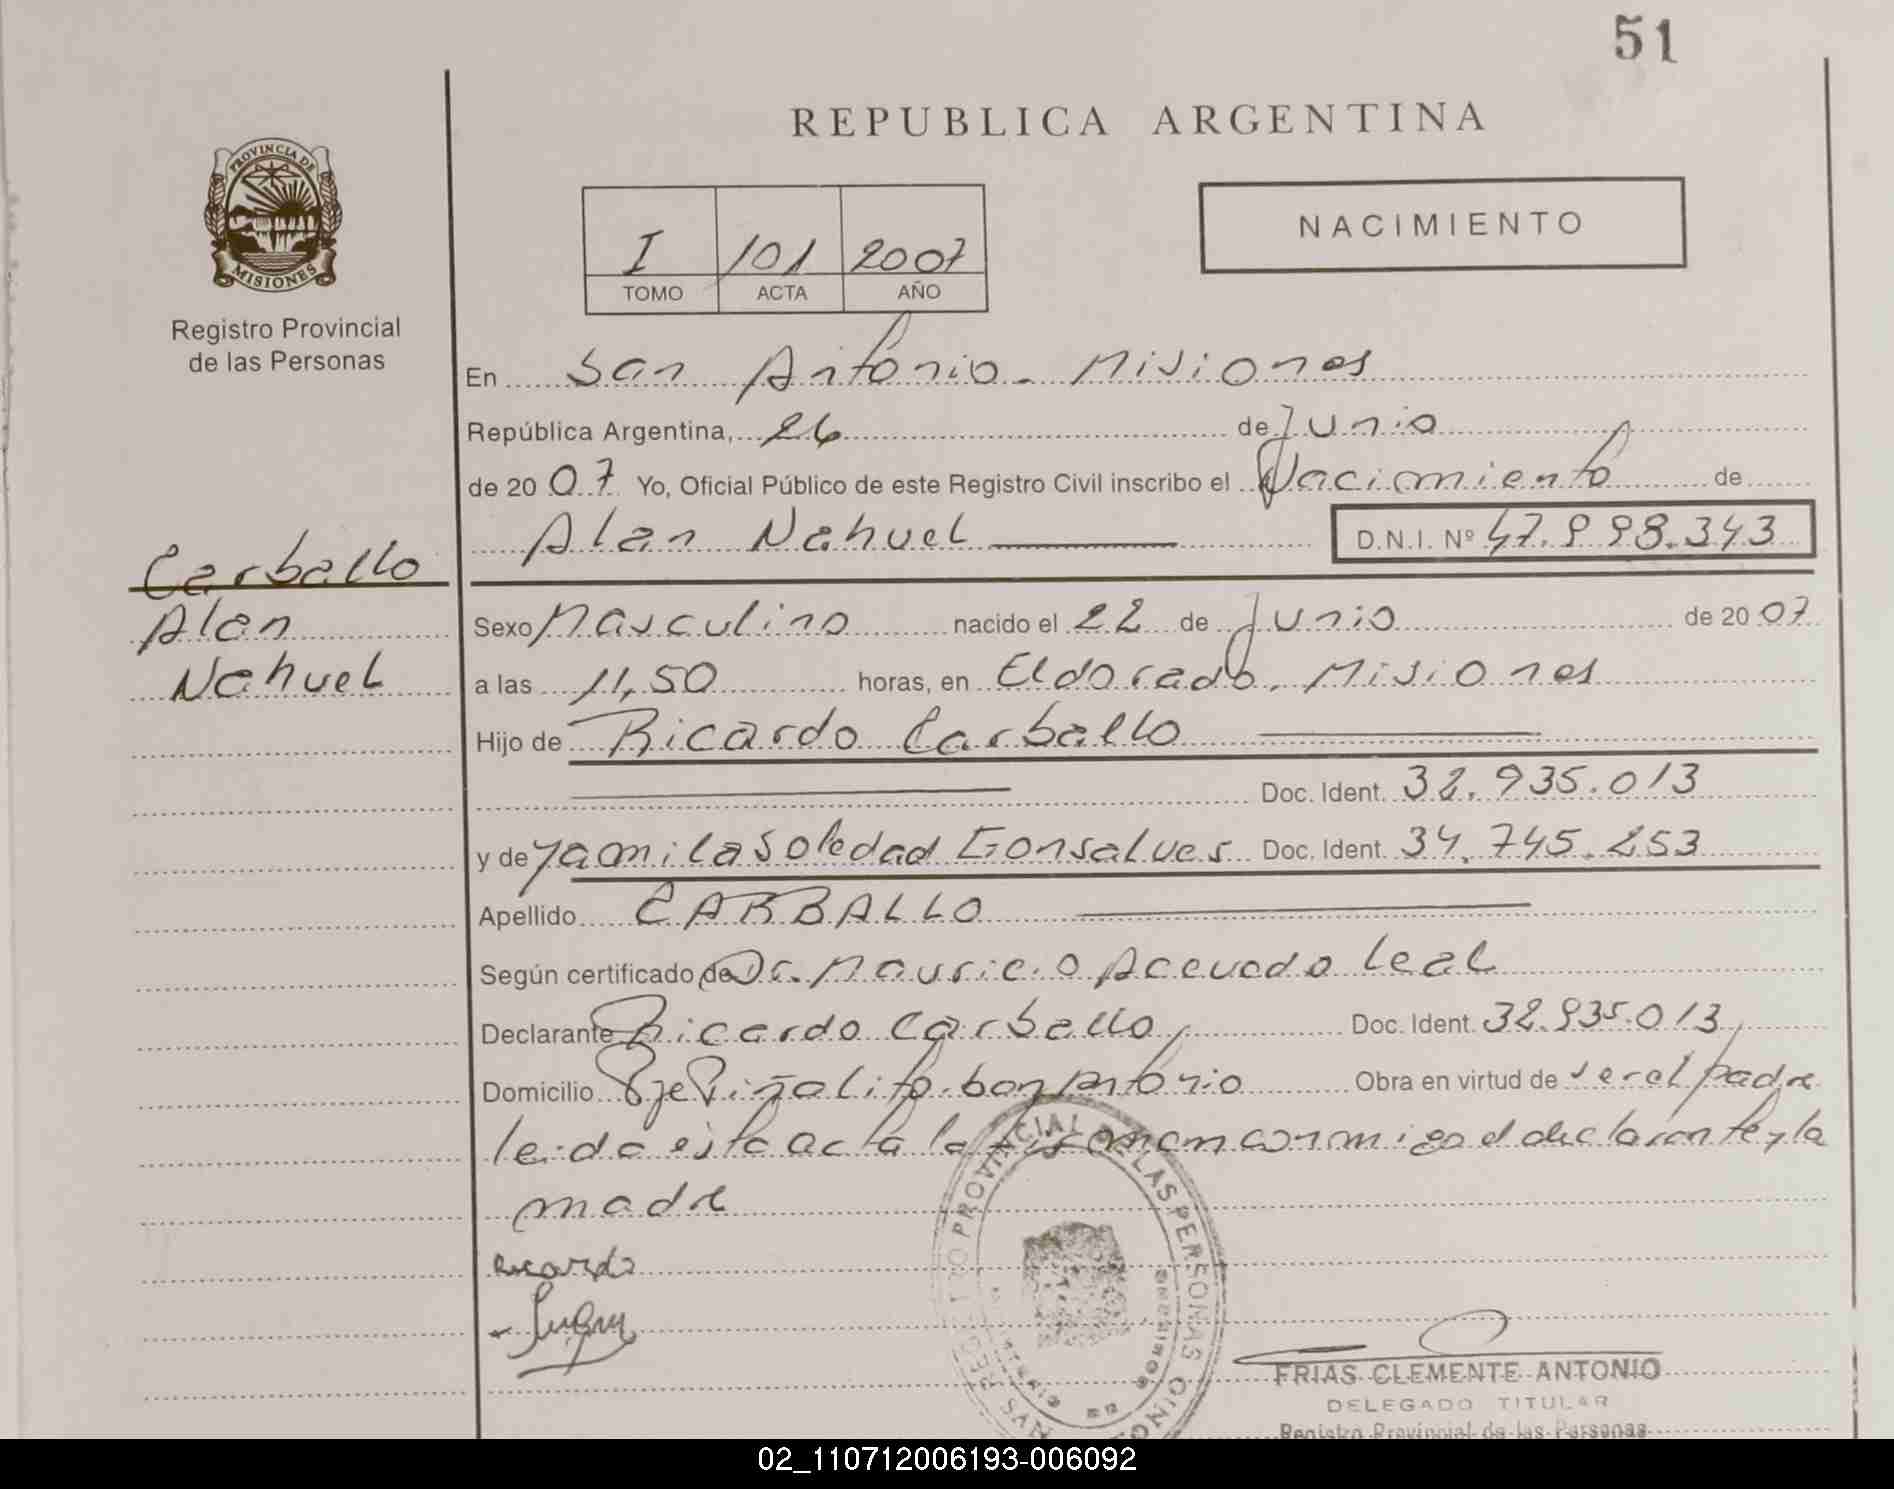 51
REPUBLICA ARGENTINA
PROVINCIA DE
MISIONES
Registro Provincial
de las Personas
I 101 2007
TOMO ACTA AÑO
NACIMIENTO
En San Antonio - Misiones
República Argentina, 26 de Junio
de 2007 Yo, Oficial Público de este Registro Civil inscribo el Nacimiento de
Alan Nahuel D.N.I. Nº 47.998.343
Carballo
Alan
Nahuel
Sexo Masculino nacido el 22 de Junio de 2007
a las 11,50 horas, en Eldorado, Misiones
Hijo de Ricardo Carballo
Doc. Ident. 32.935.013
y de Yamila Soledad Gonsalves Doc. Ident. 34.745.253
Apellido CARBALLO
Según certificado de Dr. Mauricio Acevedo Leal
Declarante Ricardo Carballo Doc. Ident. 32.935.013
Domicilio Pje Piñalito San Antonio Obra en virtud de ser el padre
leida esta acta la firman conmigo el declarante y la
madre
Ricardo
REGISTRO PROVINCIAL DE LAS PERSONAS
FRIAS CLEMENTE ANTONIO
DELEGADO TITULAR
Registro Provincial de las Personas
02_110712006193-006092